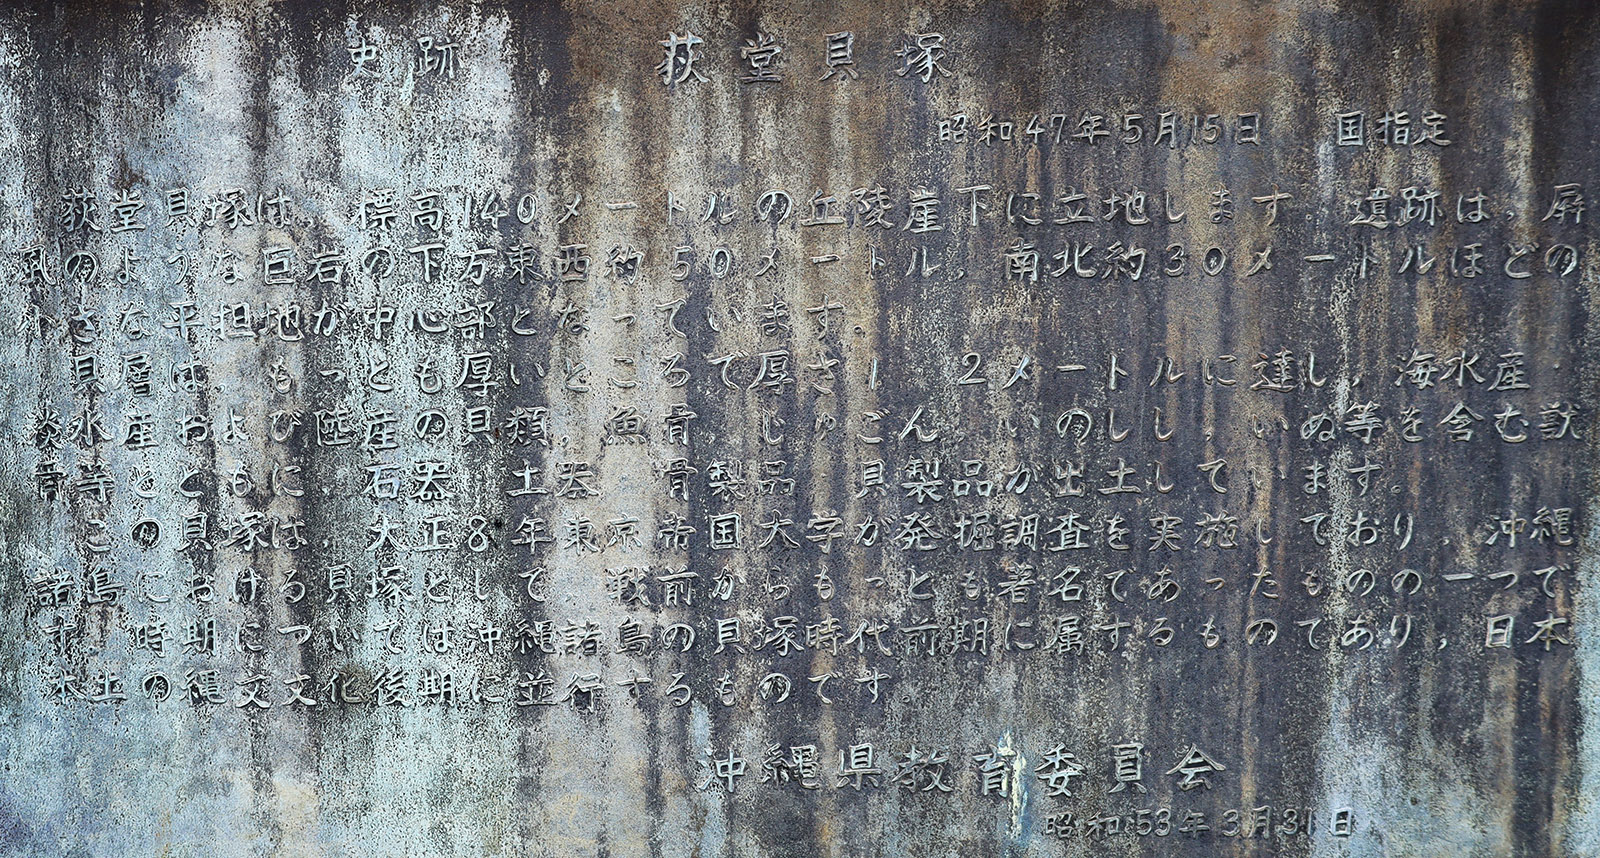 史跡 荻堂貝塚
昭和47年5月15日 国指定
荻堂貝塚は，標高140メートルの丘陵崖下に立地します。遺跡は，屏
風のような巨岩の下方東西約50メートル，南北約30メートルほどの
小さな平担地が中心部となっています。
貝層は，もっとも厚いところで厚さ1.2メートルに達し，海水産・
淡水産および陸産の貝類，魚骨，じゅごん，いのしし，いぬ等を含む獣
骨等とともに，石器，土器，骨製品，貝製品が出土しています。
この貝塚は，大正8年東京帝国大学が発掘調査を実施しており，沖縄
諸島における貝塚として，戦前からもっとも著名であったものの一つで
す。時期については沖縄諸島の貝塚時代前期に属するものであり，日本
本土の縄文文化後期に並行するものです。
沖縄県教育委員会
昭和53年3月31日